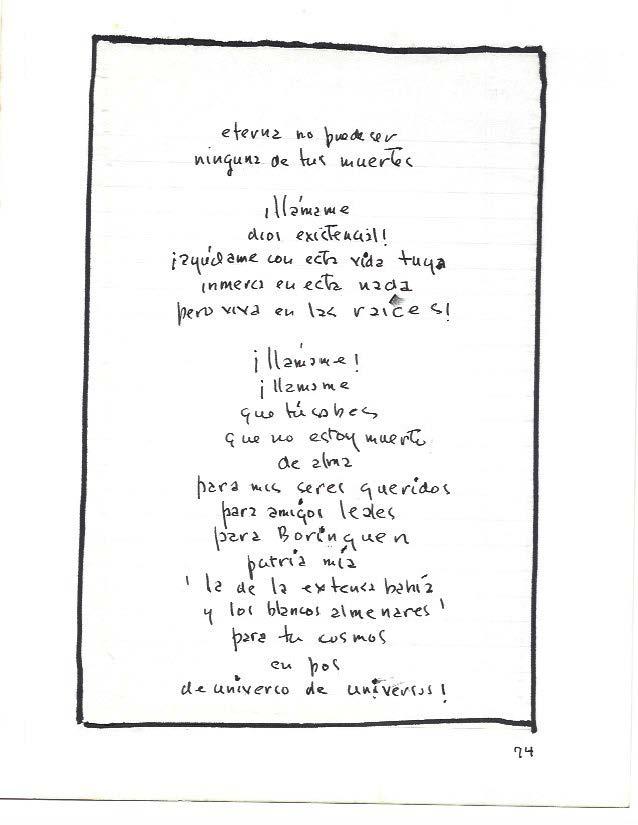 eterna no puede ser
ninguna de tus muertes
¡llámame
dios existencial!
¡ayúdame con esta vida tuya
inmersa en esta nada
pero viva en las raíces!
¡llámame!
¡llámame
que tú sabes
que no estoy muerto
de alma
para mis seres queridos
para amigos leales
para Borinquen
patria mía
'la de la extensa bahía
y los blancos almenares'
para tu cosmos
en pos
de universo de universos!
74